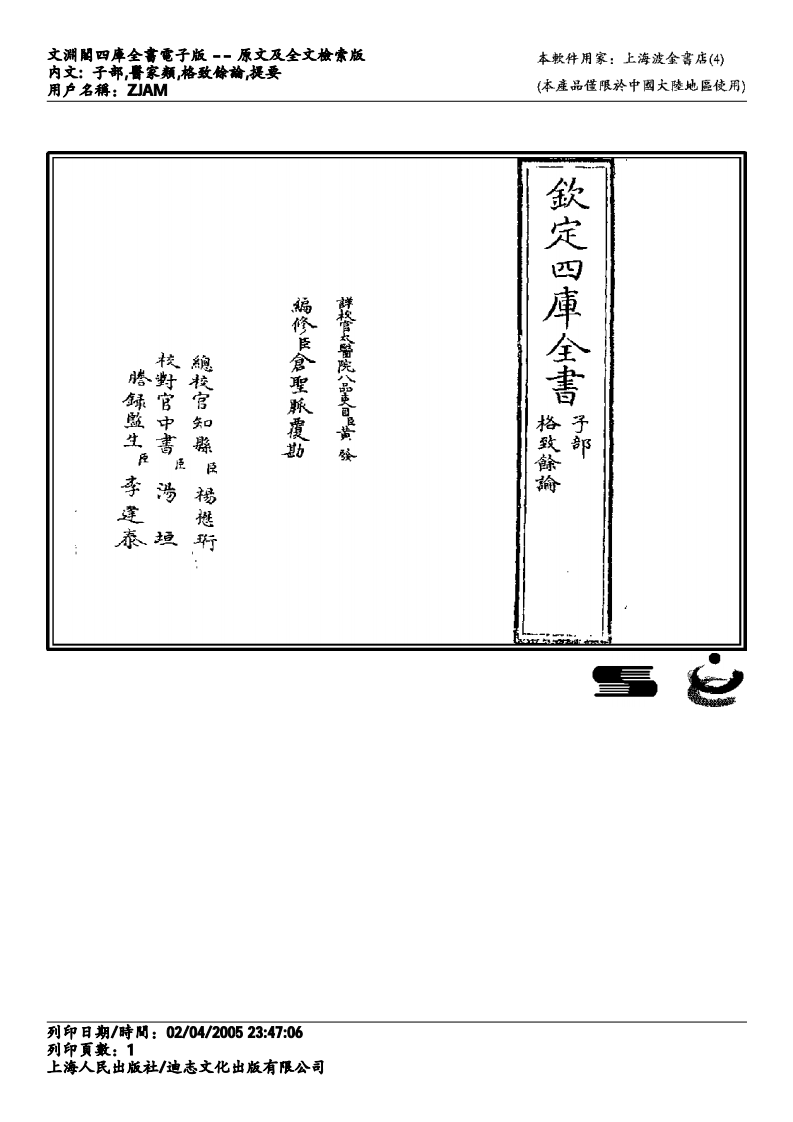 文淵閣四庫全書電子版 -- 原文及全文檢索版
內文: 子部,醫家類,格致餘論,提要
用戶名稱: ZJAM
本軟件用家: 上海波金書店(4)
(本產品僅限於中國大陸地區使用)
欽定四庫全書
子部
格致餘論
詳校官太醫院八品吏目臣黃發
編修臣倉聖脈覆勘
總校官知縣臣楊懋珩
校對官中書臣湯垣
謄錄監生臣李逢泰
列印日期/時間: 02/04/2005 23:47:06
列印頁數: 1
上海人民出版社/迪志文化出版有限公司